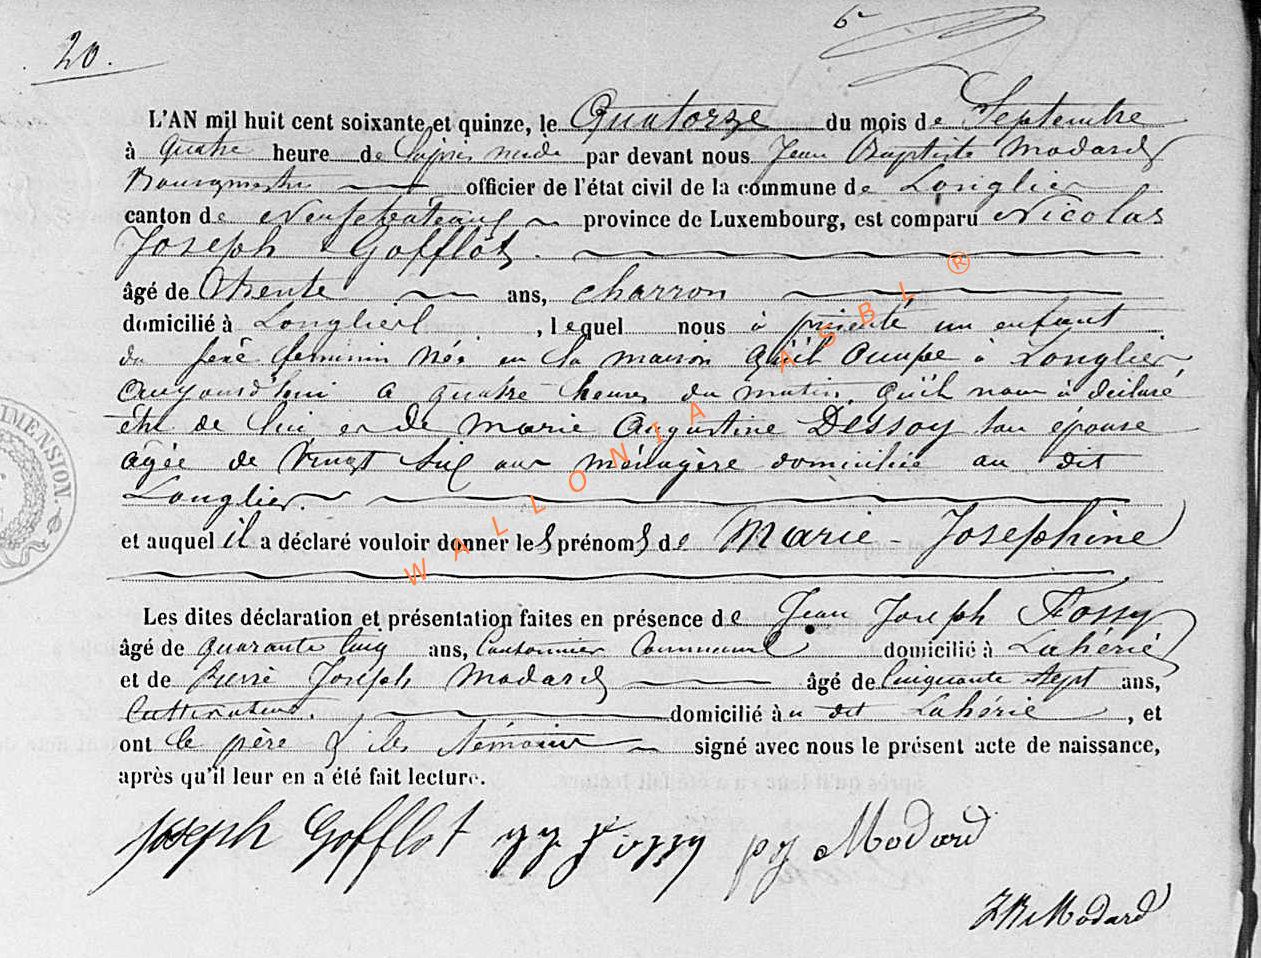 20.
6
L'AN mil huit cent soixante et quinze, le Quatorze du mois de Septembre
à quatre heure de l'après midi par devant nous Jean Baptiste Modard
Bourgmestre officier de l'état civil de la commune de Longlier
canton de Neufchateau province de Luxembourg, est comparu Nicolas
Joseph Gofflot.
âgé de Trente ans, charron
domicilié à Longlier, lequel nous à présenté un enfant
du sexe feminin née en la maison qu'il occupe à Longlier
aujourd'hui a quatre heures du matin, qu'il nous à déclaré
être de lui et de Marie Augustine Dessoy son épouse
agée de Vingt Six ans ménagère domiciliée au dit
Longlier.
et auquel il a déclaré vouloir donner les prénoms de Marie - Josephine
Les dites déclaration et présentation faites en présence de Jean Joseph Fossy
âgé de quarante cinq ans, Cantonnier Communal domicilié à Lahérie
et de Pierre Joseph Modard âgé de Cinquante Sept ans,
Cultivateur. domicilié au dit Lahérie, et
ont le père & les témoins signé avec nous le présent acte de naissance,
après qu'il leur en a été fait lecture.
Joseph Gofflot JJ Fossy PJ Modard
JB Modard
WALLONIA ASBL ®
IMENSION.